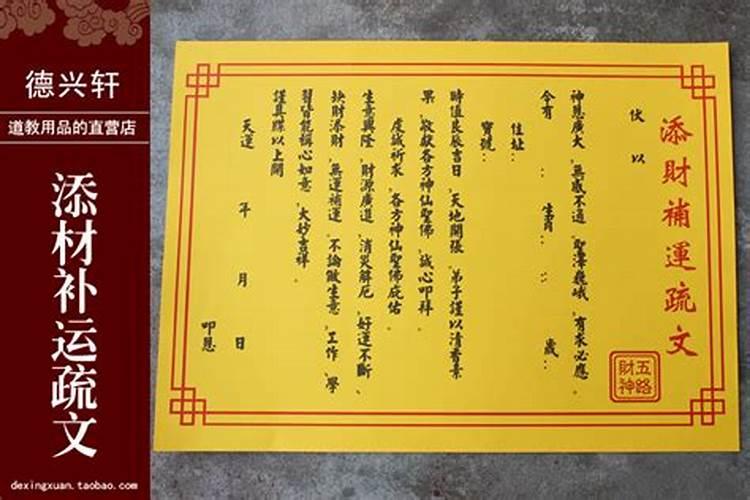 德兴轩
道教用品的直营店
添材补运疏文
dexingxuan.taobao.com
添財補運疏文
五路
財神
伏以
神恩廣大，無感不通，聖澤巍峨，有求必應。
今有：生肖：：歲：
住址：
寶號：
時值良辰吉日，天地開張，弟子謹以清香素
果，敬獻各方神仙聖佛，誠心叩拜，
虔誠祈求，各方神仙聖佛庇佑。
生意興隆，財源廣進，消災解厄，好運不斷、
缺財添財，無運補運，不論做生意，工作，學
習皆能稱心如意，大妙吉祥。
謹具牒以上聞
天運　年　月　日
叩恩